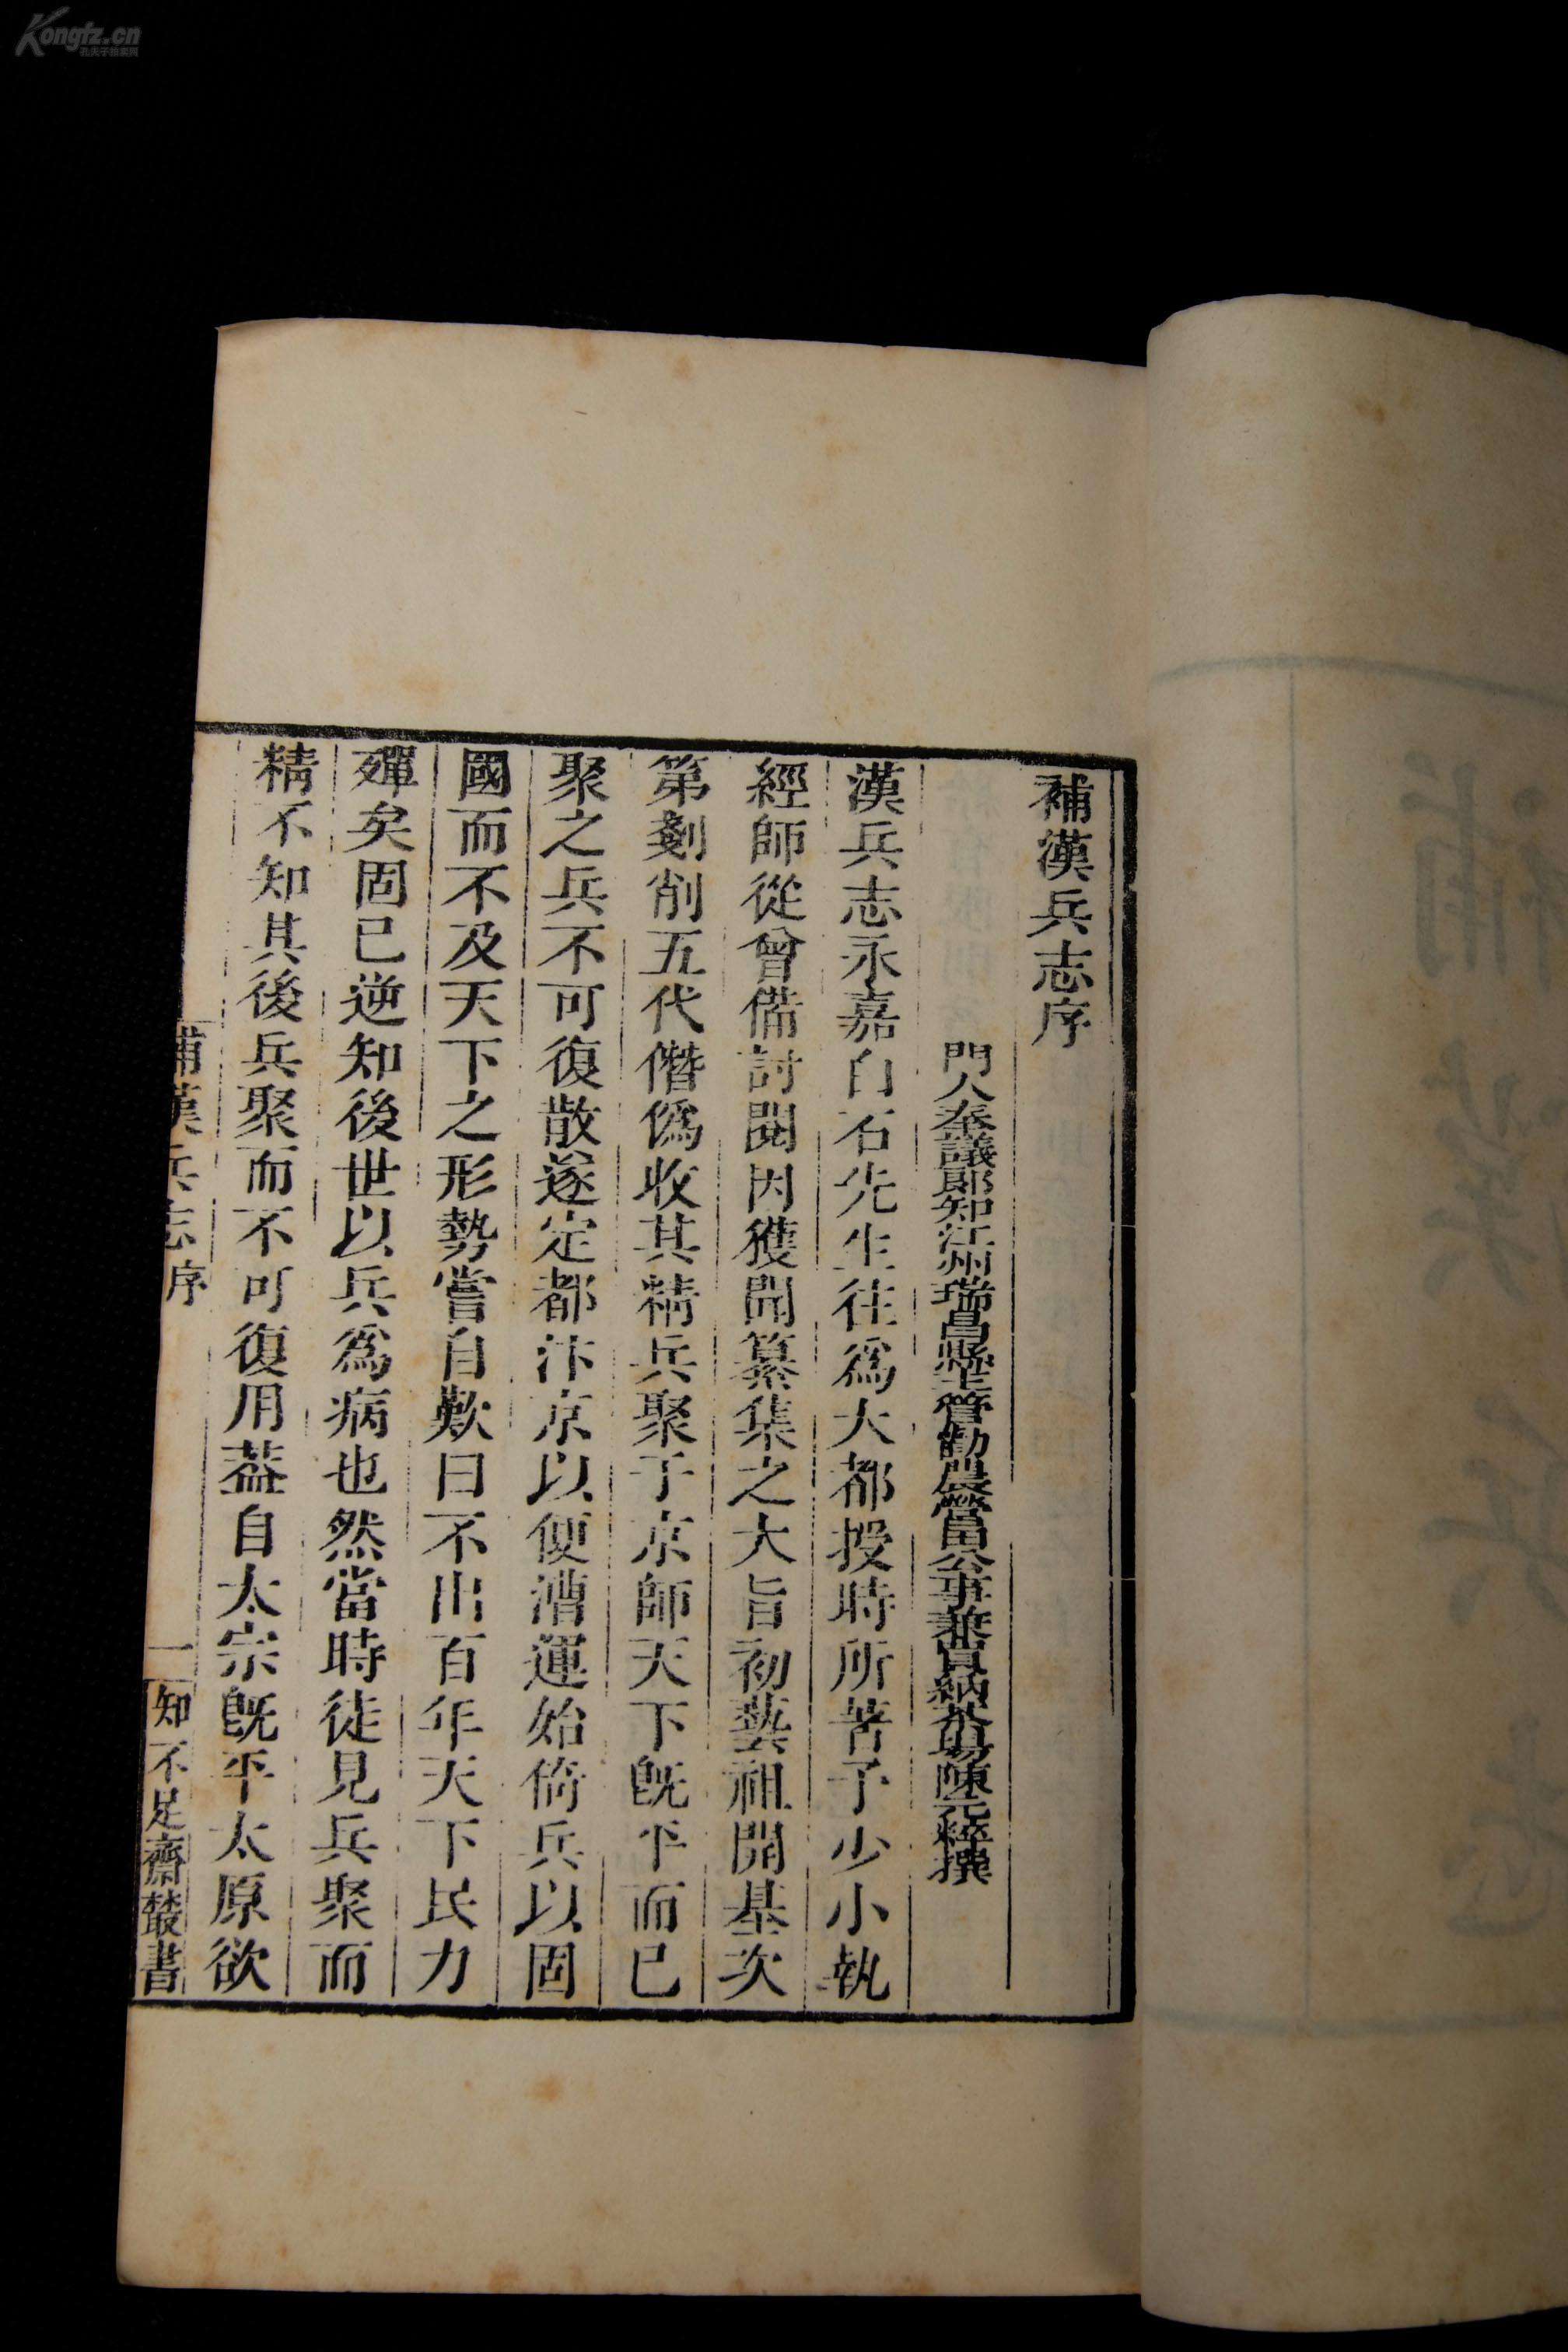 補漢兵志序
門人奉議郎知江州瑞昌縣主管勸農營田公事兼買納茶場陳元粹撰
漢兵志永嘉白石先生往爲大都授時所著予少小執
經師從曾備討閱因獲聞纂集之大旨初藝祖開基次
第剗削五代僭僞收其精兵聚于京師天下旣平而已
聚之兵不可復散遂定都汴京以便漕運始倚兵以固
國而不及天下之形勢嘗自歎曰不出百年天下民力
殫矣固已逆知後世以兵爲病也然當時徒見兵聚而
精不知其後兵聚而不可復用葢自太宗旣平太原欲
補漢兵志序
一
知不足齋叢書
Kongfz.cn